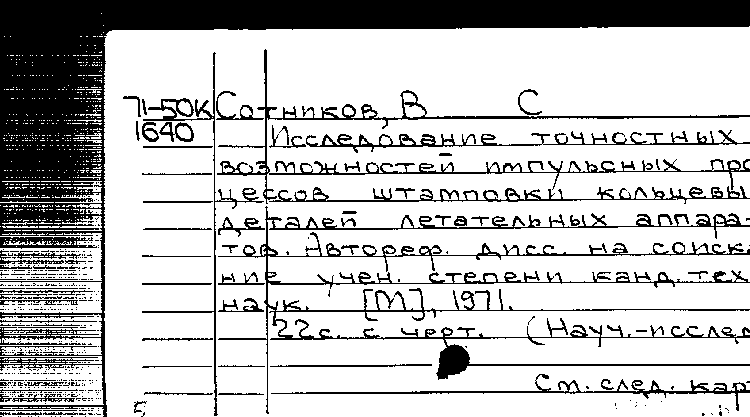 71-50к Сотников, В С
1640 Исследование точностных
возможностей импульсных про
цессов штамповки кольцевы
деталей летательных аппара-
тов. Автореф. дисс. на соиска
ние учен. степени канд. тех
наук. [М], 1971.
22с. с черт. (Науч.-исслед
См. след. кар
5